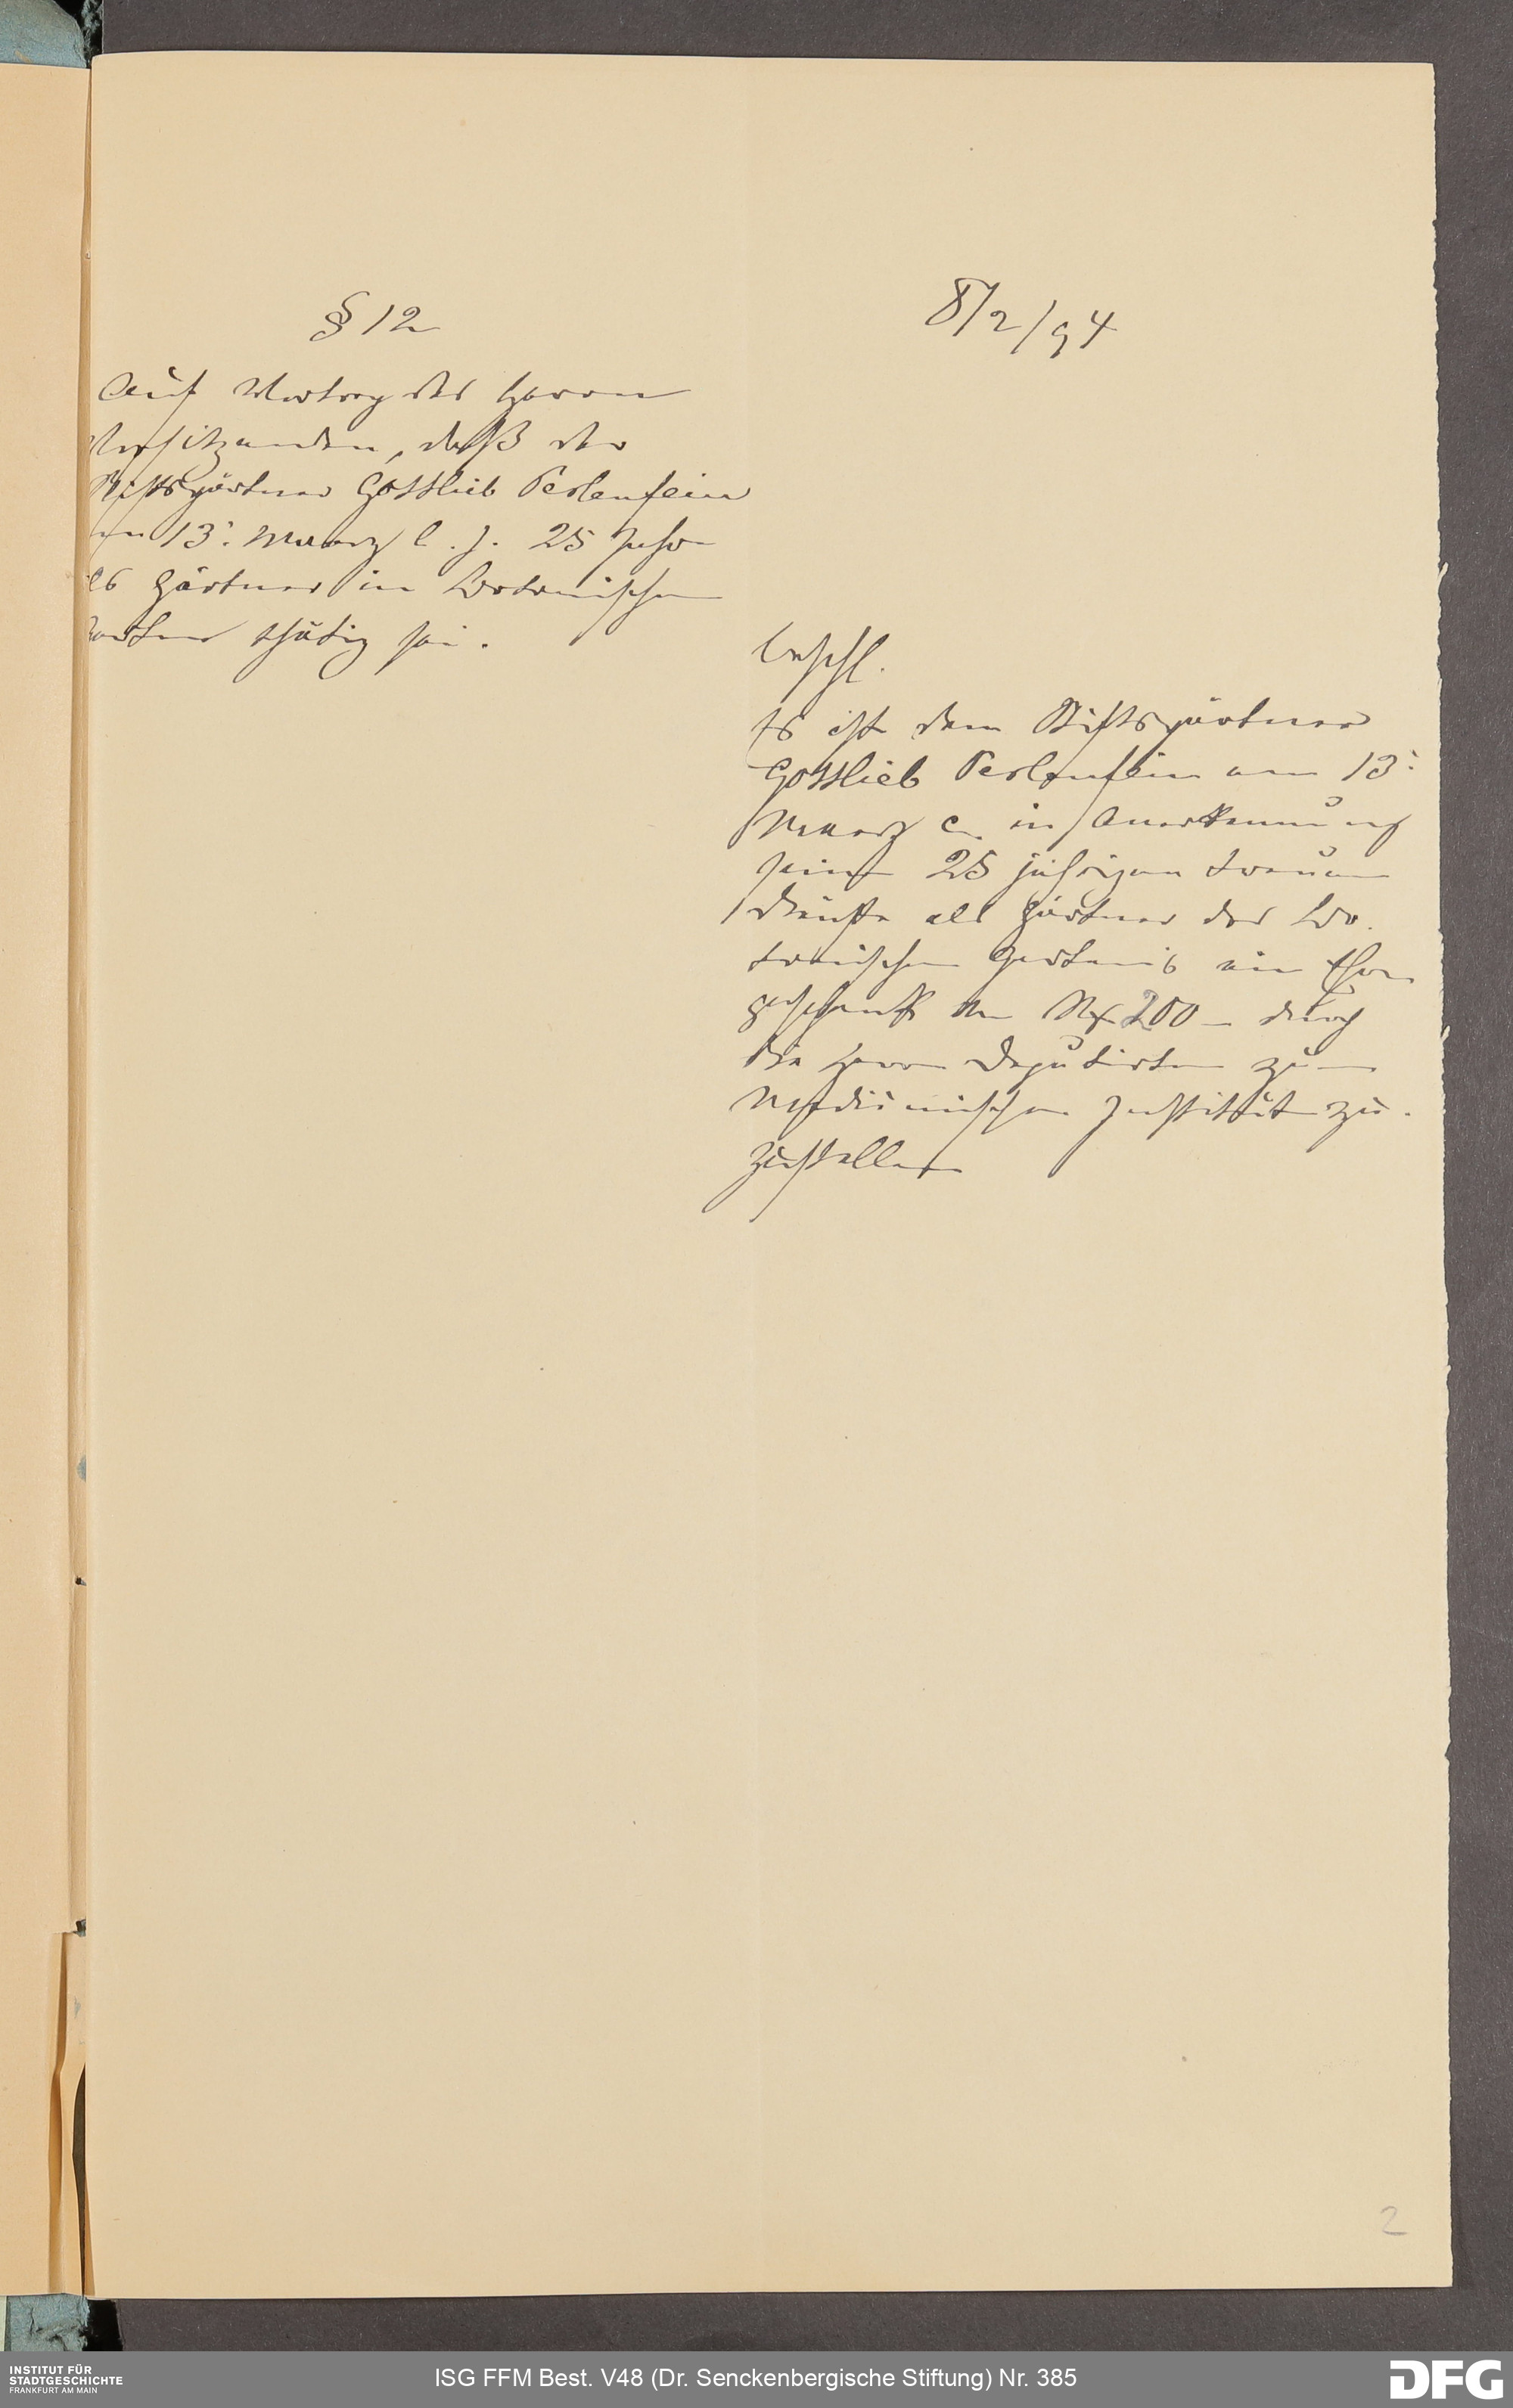 § 12
8/2/94
Auf Vortrag des Herrn
Vorsitzenden, daß der
Stiftsgärtner Gottlieb Perlenfein
am 13. Maerz l. J. 25 Jahre
als Gärtner im botanischen
Garten thätig sei.
beschl.
Es ist dem Stiftsgärtner
Gottlieb Perlenfein am 13.
Maerz c. in Anerkennung
seiner 25 jährigen treuen
Dienste als Gärtner des bo
tanischen Gartens ein Ehren
geschenk von M 200 – durch
die Herrn Deputirten zum
Medicinischen Institut zu
zustellen
2
INSTITUT FÜR
STADTGESCHICHTE
FRANKFURT AM MAIN
ISG FFM Best. V48 (Dr. Senckenbergische Stiftung) Nr. 385
DFG